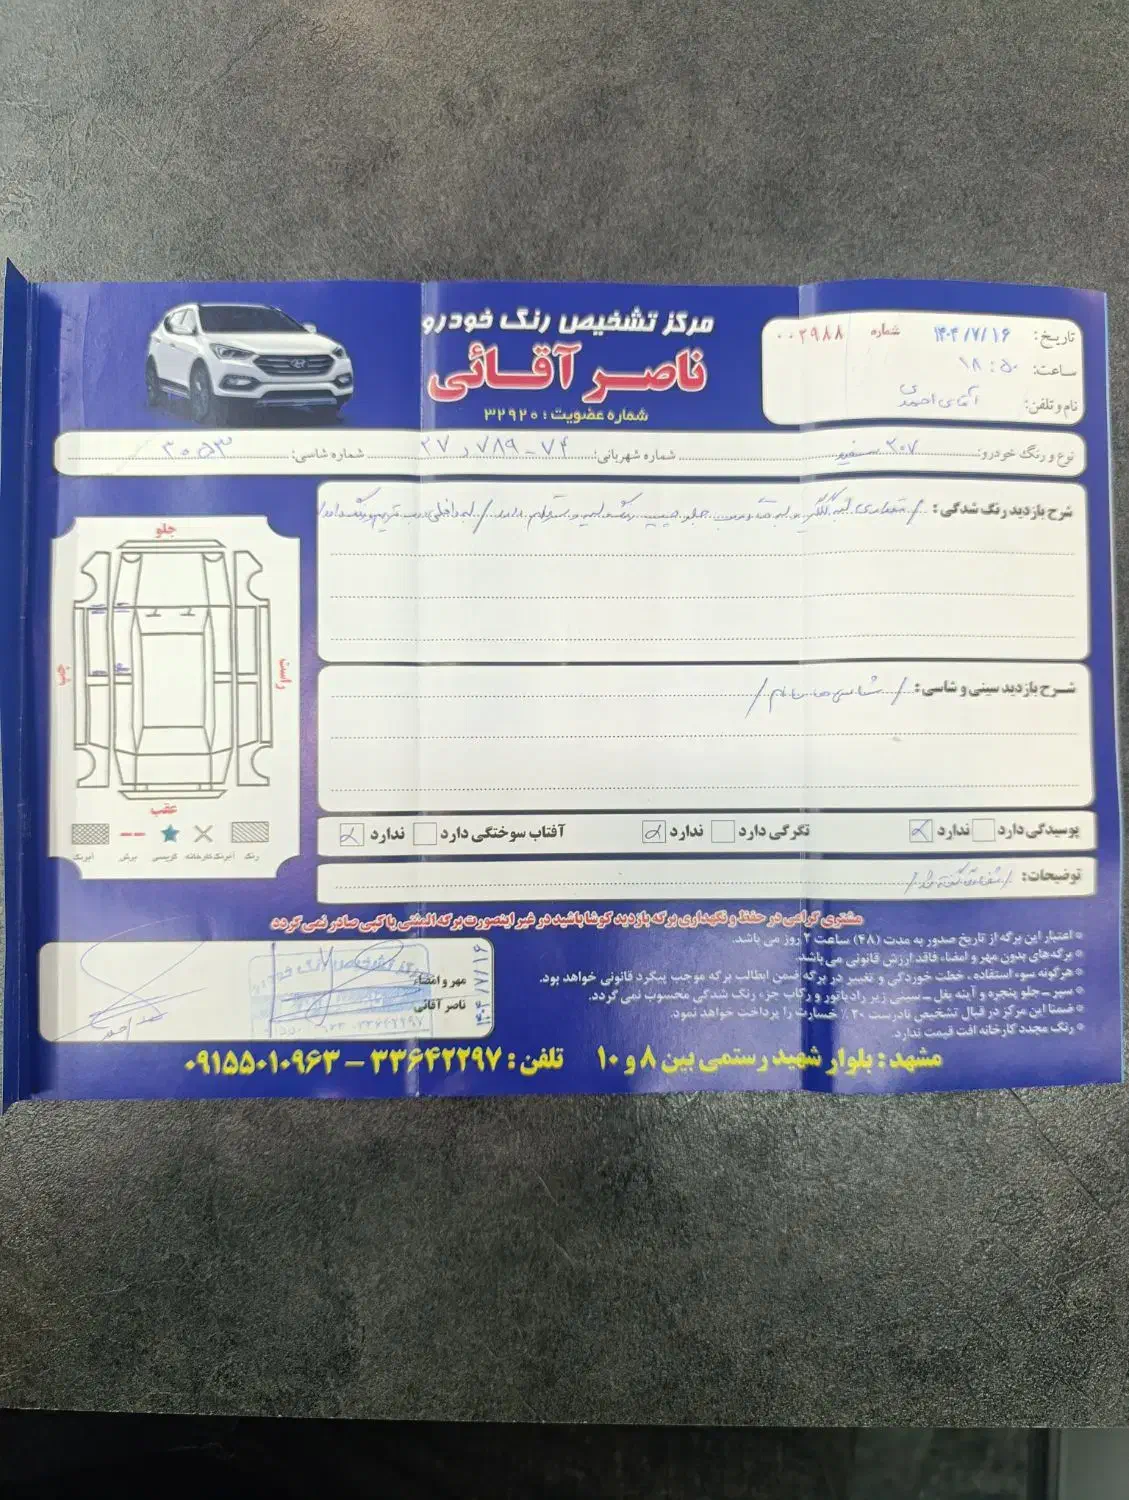 مرکز تشخیص رنگ خودرو
ناصر آقائی
شماره عضویت : ۳۲۹۲۰
تاریخ: ۱۴۰۴/۷/۱۶ شماره ۰۰۲۹۸۸
ساعت: ۱۸:۵۰
نام و تلفن: آقای احمدی
نوع و رنگ خودرو: ۲۰۷ سفید شماره شهربانی: ۷۴-۷۸۹ د ۲۷ شماره شاسی: ۳۰۵۳
شرح بازدید رنگ شدگی: / مقداری لبه گلگیر و لبه درب جلو چپ رنگ
شرح بازدید سینی و شاسی: / شاسی ها سالم /
پوسیدگی دارد ندارد تگرگی دارد ندارد آفتاب سوختگی دارد ندارد
توضیحات: / شفاها گفته شد /
جلو
چپ
راست
عقب
رنگ آبرنگ کارخانه کریسی برش آبرنگ
مشتری گرامی در حفظ و نگهداری برگه بازدید کوشا باشید در غیر اینصورت برگه المثنی یا کپی صادر نمی گردد
* اعتبار این برگه از تاریخ صدور به مدت (۴۸) ساعت ۲ روز می باشد.
* برگه‌های بدون مهر و امضاء فاقد ارزش قانونی می‌باشد.
* هرگونه سوء استفاده ، خطت خوردگی و تغییر در برگه ضمن ابطال برگه موجب پیگرد قانونی خواهد بود.
* سپر - جلو پنجره و آینه بغل - سینی زیر رادیاتور و رکاب جزء رنگ شدگی محسوب نمی گردد.
* ضمنا این مرکز در قبال تشخیص نادرست ۲۰٪ خسارت را پرداخت خواهد نمود.
* رنگ مجدد کارخانه افت قیمت ندارد.
مهر و امضاء
ناصر آقائی
۱۴۰۴/۷/۱۶
مشهد : بلوار شهید رستمی بین ۸ و ۱۰ تلفن : ۳۳۶۴۲۲۹۷ - ۰۹۱۵۵۰۱۰۹۶۳